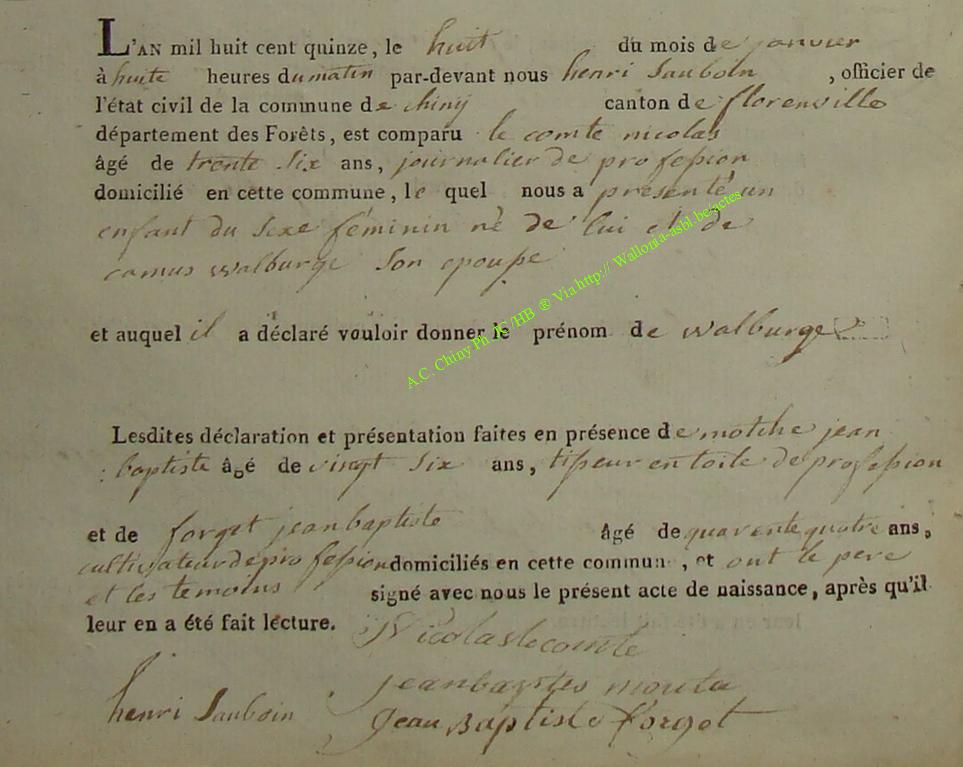 L'AN mil huit cent quinze, le huit du mois de janvier
à huite heures du matin par-devant nous henri Sauboin, officier de
l'état civil de la commune de chinij canton de florenville
département des Forêts, est comparu le comte nicolas
âgé de trente Six ans, journalier de profession
domicilié en cette commune, le quel nous a présenté un
enfant du Sexe féminin né de lui et de
camus walburge Son epouse
et auquel il a déclaré vouloir donner le prénom de walburge
Lesdites déclaration et présentation faites en présence de motthe jean
baptiste âgé de vingt Six ans, tisseur en toile de profession
et de forget jean baptiste âgé de quarente quatre ans,
cultivateur de profession domiciliés en cette commune, et ont le pere
et les temoins signé avec nous le présent acte de naissance, après qu'il
leur en a été fait lecture.
Nicolas lecomte
jean baptes mouta
henri Sauboin
Jean Baptiste forget
A.C. Chiny Ph JC /HB ® Via http:// Wallonia-asbl.be/actes